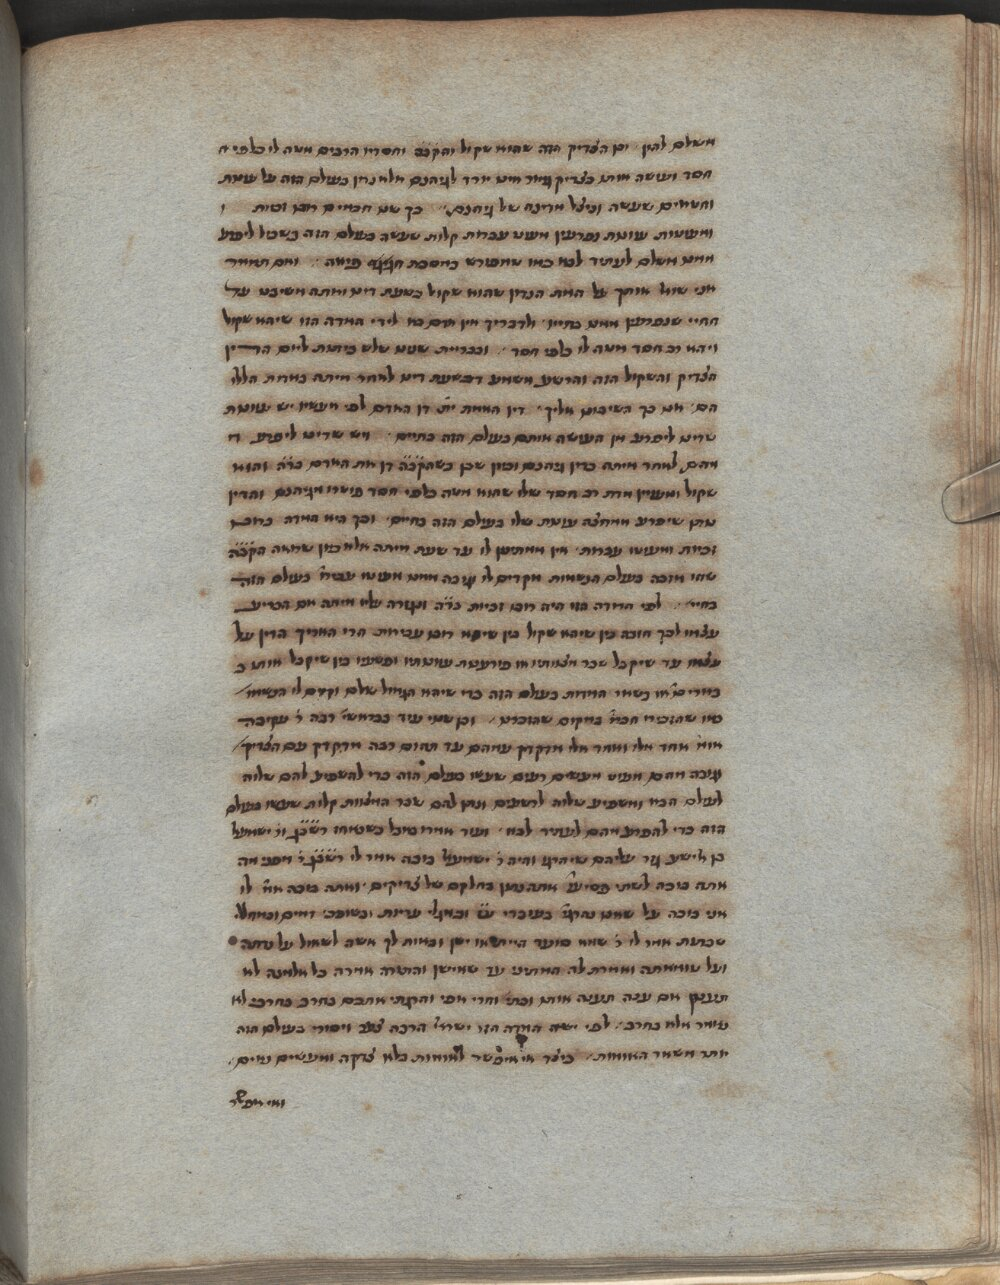 משלם להין׳ וכן הצדיק הזה שהוא שקול והקב״ה וחסדיו הרבים מטה לו כלפי ח
חסד ועושה אותו כצדיק גמור אינו יורד לגיהנם אלא נדון בעולם הזה על עונות
וחטאים שעשה וניצל מדינה של גיהנם׳׳ כך שנו חכמים רובו זכיות ו
ומיעוטו עונות נפרעין מיעוט עבירות קלות שעשה בעולם הזה בשביל ליפרע
ממנו משלם לעתיד לבא כמו שמפורש במסכת חגיגה פיאה׃ ואם תאמר
אני שואל אותך על המת הנדון שהוא שקול בשעת דינו ואתה משיבנו על
החיי שנפרעין ממנו בחייו׳ ולדבריך אין אדם בא לידי המדה הזו שיהא שקול
ויהא רב חסד מטה לו כלפי חסד׃ ובברייתא שנינו שלש כיתות ליום הדין
הצדיק והשקול הזה והרשע משמע דבשעת דינו לאחר מיתה במדות הללו
הם׳ אם כך השיבנו אליך׳ דין האמת ית׳ דן האדם לפי מעשיו יש עונות
שדינו ליפרע מן העושה אותם בעולם הזה בחיים׳ ויש שדינו ליפרע די
מהם לאחר מיתה בדין גיהנם וכיון שכן כשהקב״ה דן את האדם בר״ה והוא
שקול ומעיין מדת רב חסד שלו שהוא מטה כלפי חסד פוטרו מגיהנם והדין
נותן שיפרע ממחצה עונות שלו בעולם הזה בחיים׳ וכך היא המדה ברובו
זכיות ומיעוטו עבירות׳ אין ממתינין לו עד שעת מיתה אלא כיון שרואה הקב״ה
שזהו מזכה בעולם הנשמות מקדים לו וגובה ממנו מיעוטו עבירו׳ בעולם הזה
בחיי׳׃ לפי המדה הזו היה רובו זכיות בר״ה ונגזרה עליו מיתה אם הכריע
עצמו לכך חובה בין שיהא שקול בין שיהא רובו עבירות הרי האריך הדין על
עצמו עד שיקבל שכר מצותיו או פורענות עונותיו ופשעיו בין שיקבל אותו ב
ביסורים או בשאר המדות בעולם הזה כדי שיהא הגמול שלם וקדם לו הנשמו׳
כמו שהזכירו חכמ׳ במקום שהוזכרנו׳ וכן שנו עוד בבראשי׳ רבה ר׳ עקיבה
אומ׳ אחד אלו ואחד אלו מדקדק עמהם עד תהום רבה מדקדק עם הצדיק׳
וגובה מהם מעוט מעשים רעים שעשו בעולם הזה כדי להשפיע להם שלוה
לעולם הבא ומשפיע שלוה לרשעים ונתן להם שכר המצוות קלות שעשו בעולם
הזה כדי להפרע מהם לעתיד לבא׳ ועוד אמרו כשנאחזו רשב״ג ור׳ ישמעאל
בן אלישע גזר עליהם שיהרגו והיה ר׳ ישמעאל בוכה אמר לו רשב״ג ר׳ מפני מה
אתה בוכה לשתי פסיעו׳ אתה נתון בחלקם של צדיקים ואתה בוכה אמ׳ לו
אני בוכה על שאנו נהרגי׳ כעובדי ע״ז וכמגלי עריות וכשופכי דמים וכמחללי
שבתות אמר לו ר׳ שמא סועד היית או ישן ובאת לך אשה לשאול על נדתה
ועל טומאתה ואמרת לה המתיני עד שאישן והתורה אמרה כל אלמנה לא
תענון אם ענה תענה אותו וכתי׳ וחרי אפי והרגתי אתכם בחרב בחרב לא
נאמר אלא בחרב׃ לפי המדה הזו ישראל הרבה צער ויסורי בעולם הזה
יותר משאר האומות׳ כיצד אי אפשר לאומות בלא צדקה ומעשים טובים׃
ואי אפשר